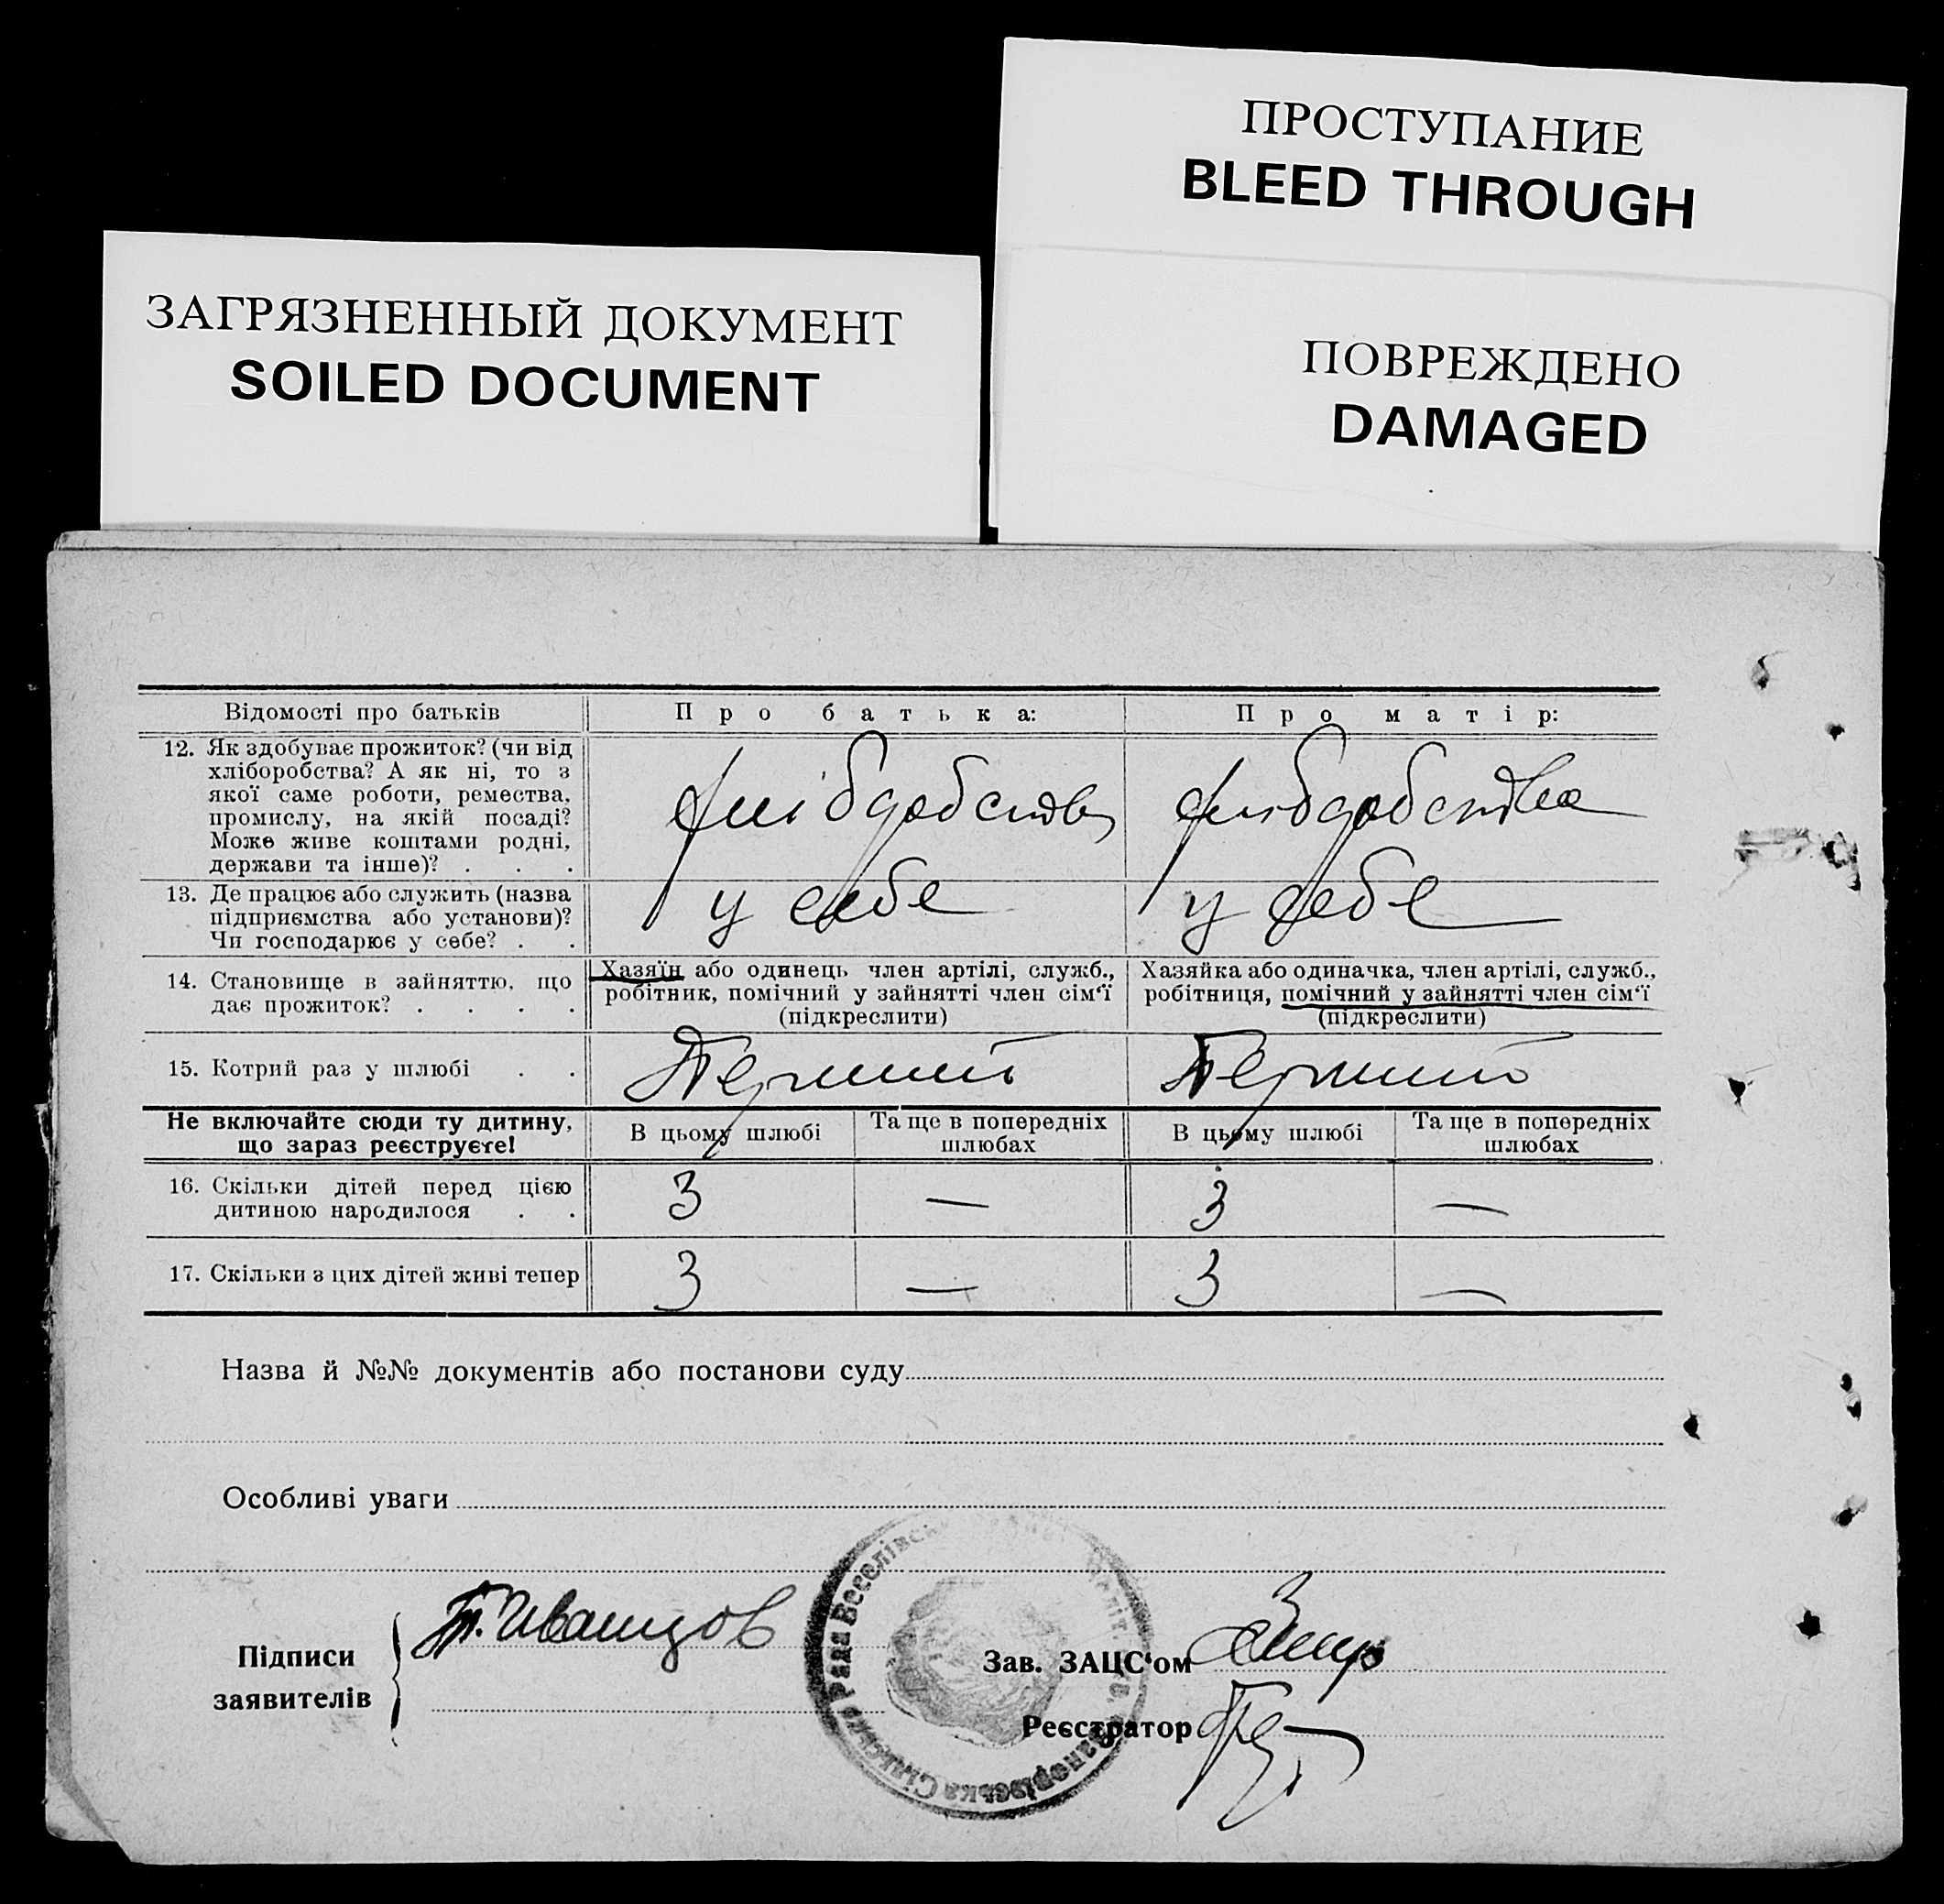 ПРОСТУПАНИЕ
BLEED THROUGH
ЗАГРЯЗНЕННЫЙ ДОКУМЕНТ
SOILED DOCUMENT
ПОВРЕЖДЕНО
DAMAGED
Відомості про батьків
Про батька:
Про матір:
12. Як здобуває прожиток? (чи від
хліборобства? А як ні, то з
якої саме роботи, ремества,
промислу, на якій посаді?
Може живе коштами родні,
держави та інше)? . . .
13. Де працює або служить (назва
підприємства або установи)?
Чи господарює у себе? . .
у себе
у себе
14. Становище в зайняттю, що
дає прожиток? . . . .
Хазяїн або одинець член артілі, служб.,
робітник, помічний у зайнятті член сім'ї
(підкреслити)
Хазяйка або одиначка, член артілі, служб.,
робітниця, помічний у зайнятті член сім'ї
(підкреслити)
15. Котрий раз у шлюбі . .
Перший
Перший
Не включайте сюди ту дитину,
що зараз реєструєте!
В цьому шлюбі
Та ще в попередніх
шлюбах
В цьому шлюбі
Та ще в попередніх
шлюбах
16. Скільки дітей перед цією
дитиною народилося . .
3
—
3
—
17. Скільки з цих дітей живі тепер
3
—
3
—
Назва й №№ документів або постанови суду
Особливі уваги
Підписи
заявителів
П. Ивашцов
Зав. ЗАЦС'ом
Реєстратор
Сільська Рада Веселівськ